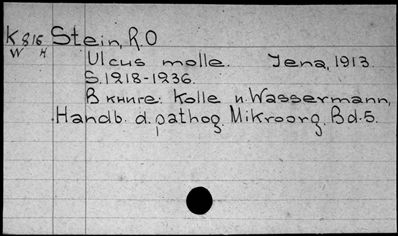 K 816 Stein, R.O
W H
Ulcus molle. Jena, 1913.
S. 1218-1236.
В книге: Kolle и. Wassermann,
Handb. d. pathog. Mikroorg. Bd. 5.